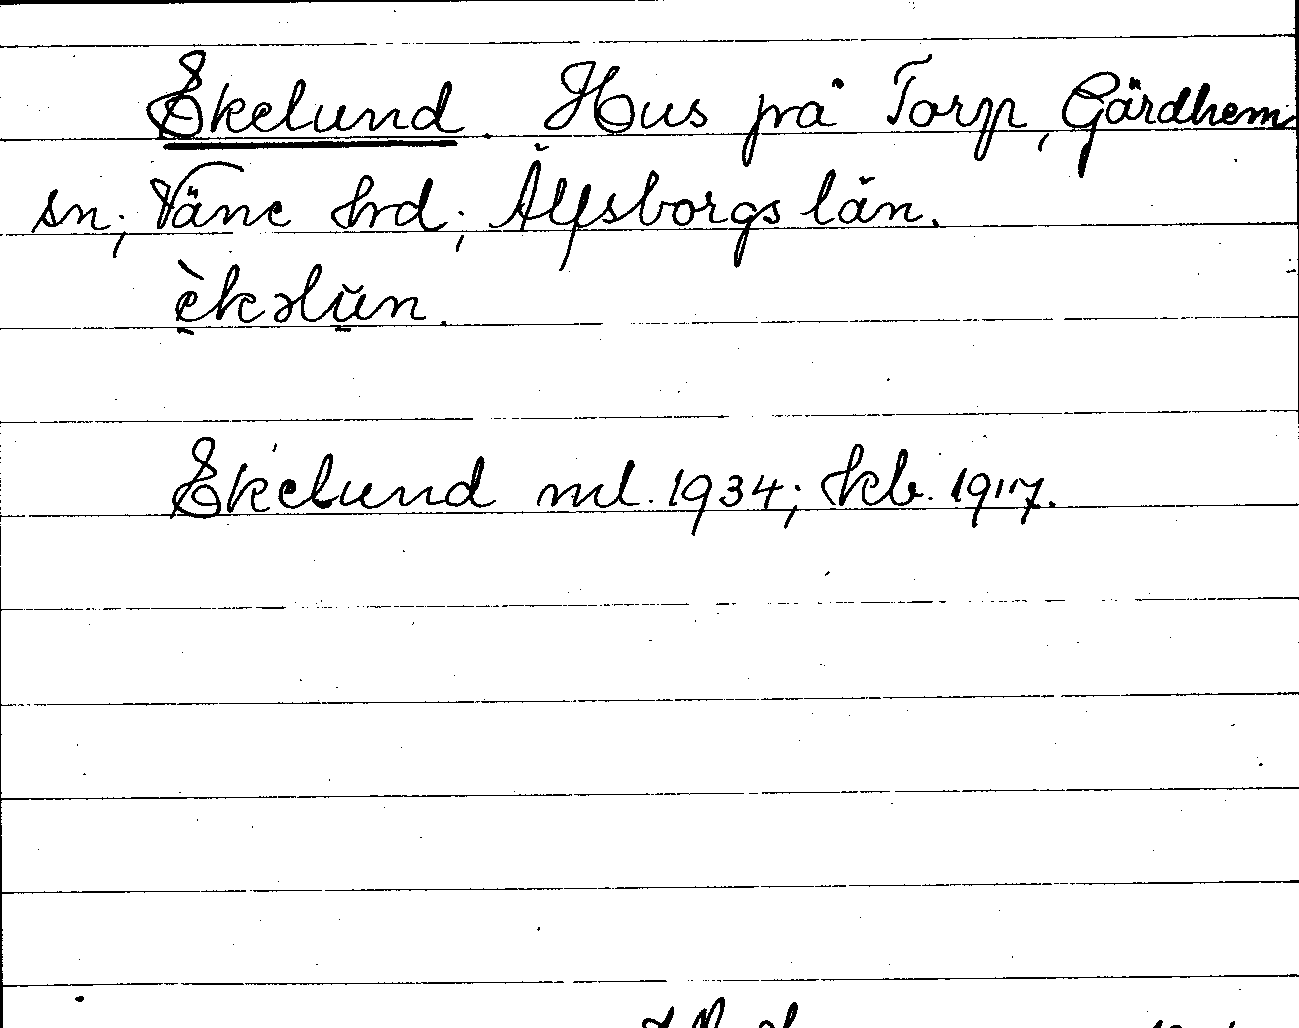 Ekelund. Hus på Torp, Gärdhem
sn; Väne hrd; Älfsborgs län.
èkəlŭn.
Ekelund ml. 1934; kb. 1917.